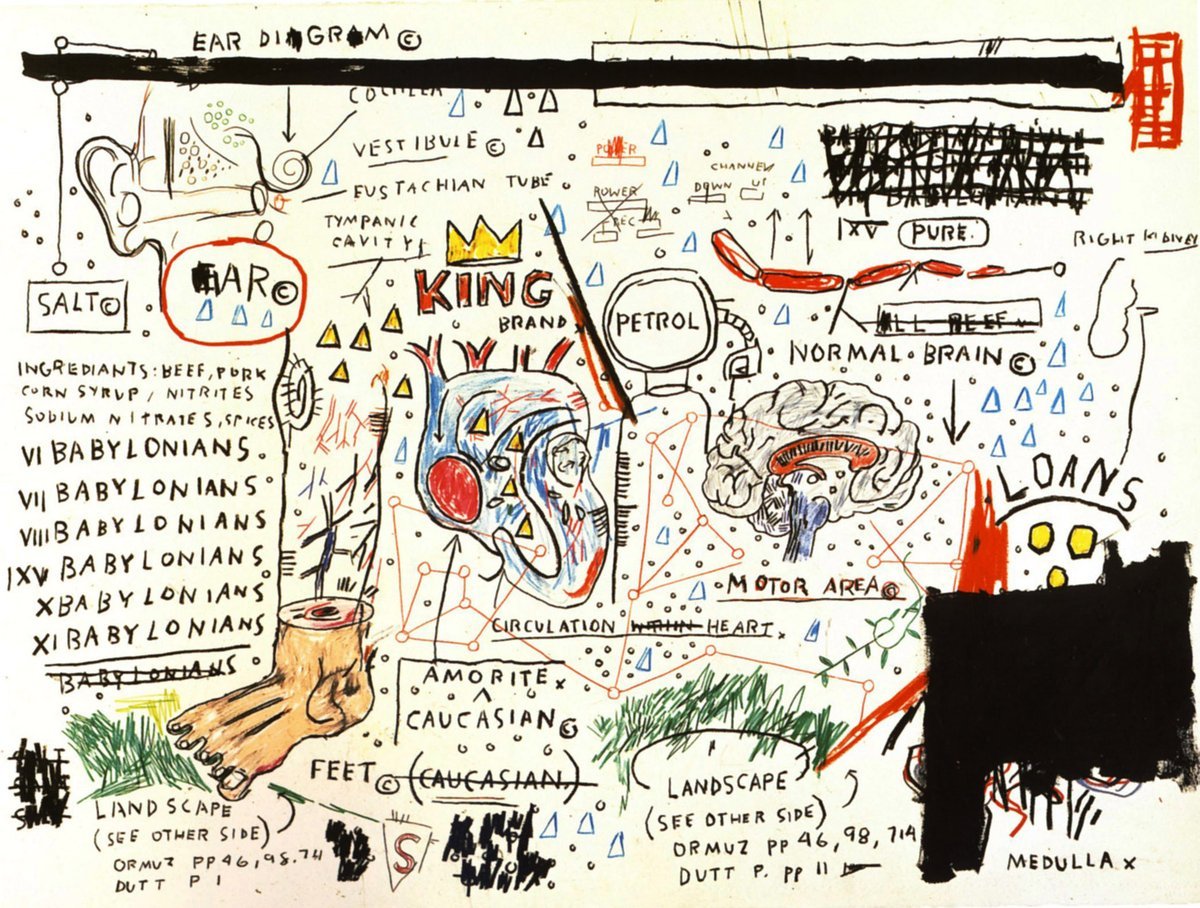 EAR DIAGRAM ©
COCHLEA
VESTIBULE ©
EUSTACHIAN TUBE
TYMPANIC
CAVITY
EAR ©
SALT ©
INGREDIANTS: BEEF, PORK
CORN SYRUP / NITRITES
SODIUM NITRATES, SPICES
VI BABYLONIANS.
VII BABYLONIANS
VIII BABYLONIANS
IXV BABYLONIANS
X BABYLONIANS
XI BABYLONIANS
BABYLONIANS
LANDSCAPE
(SEE OTHER SIDE)
ORMUZ PP 46, 98, 714
DUTT P 1
KING
BRAND
POWER
POWER
REC
CHANNEL
DOWN
UP
PETROL
IXV
PURE.
RIGHT KIDNEY
ALL BEEF
NORMAL BRAIN ©
LOANS
MOTOR AREA ©
CIRCULATION WITHIN HEART x
AMORITE x
^
CAUCASIAN ©
FEET © (CAUCASIAN.)
S
LANDSCAPE
(SEE OTHER SIDE)
ORMUZ PP 46, 98, 714
DUTT P. PP 11
MEDULLA x